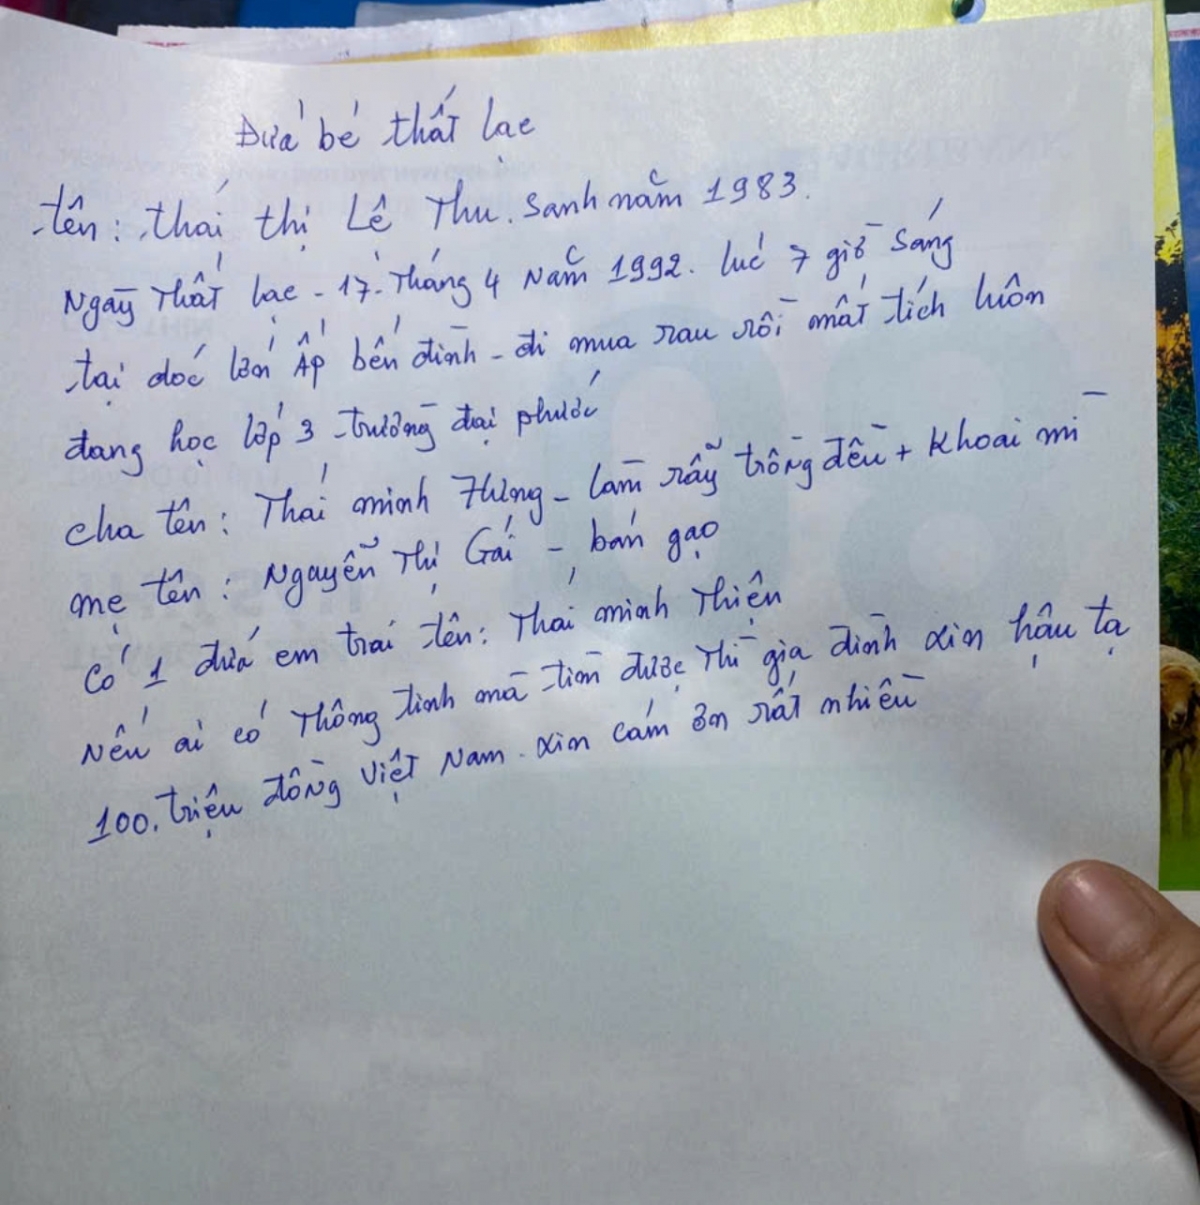 Đứa bé thất lạc
tên: thái thị Lệ Thu. Sanh năm 1983.
Ngày Thất lạc - 17. Tháng 4 Năm 1992. lúc 7 giờ Sáng
tại dốc lớn Ấp bến đình - đi mua rau rồi mất tích luôn
đang học lớp 3 - trường đại phước
cha tên: Thái minh Hùng - làm rẫy trồng đều + khoai mì
mẹ tên: Nguyễn Thị Gái - bán gạo
Có 1 đứa em trai tên: Thái minh Thiện
Nếu ai có Thông tinh mà tìm được Thì gia đình xin hậu tạ
100. triệu đồng Việt Nam. xin cám ơn rất nhiều